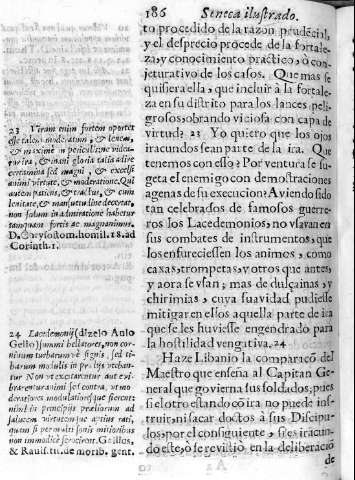 186 Seneca ilustrado.
to procedido de la razon prudẽcial,
y el desprecio procede de la fortale-
za, y conocimiento practico, ò con-
jeturativo de los casos. Que mas se
quisiera ella, que incluir à la fortale-
za en su distrito para los lances peli-
grosos, obrando viciosa con capa de
virtud? 23 Yo quiero que los ojos
iracundos sean parte de la ira. Que
tenemos con esso? Por ventura se su-
geta el enemigo con demostraciones
agenas de su execucion? Aviendo sido
tan celebrados de famosos guerre-
ros los Lacedemonios, no vsavan en
sus combates de instrumentos, que
los enfureciessen los animos, como
caxas, trompetas, y otros que antes,
y aora se vsan; mas de dulçainas, y
chirimias, cuya suavidad pudiesse
mitigar en ellos aquella parte de ira
que se les huviesse engendrado para
la hostilidad vengativa. 24
Haze Libanio la comparacõ del
Maestro que enseña al Capitan Ge-
neral que govierna sus soldados; pues
si el otro estando cõ ira no puede ins-
truir, ni sacar doctos à sus Discipu-
los, por el consiguiente, si es iracun-
do este, ò se revistiò en la deliberaciõ
de
23 Virum enim fortem oportet
esse talem, moderatum, & lenem,
& maximè in periculis ne videa-
tur ira, & inani gloria talia adire
certamina sed magni, & excelsi
animi virtute, & moderatione. Qui
autem patitur, & tractatur, & cum
lenitate, & mansuetudine decorat,
non solum in admiratione habetur
tamquam fortis ac magnanimus.
D. Chrysostom. homil. 18. ad
Corinth. 1.
24 Lacedemonij (dize lo Aulo
Gelio) summi bellatores, non cor-
nium tubarum vè signis, sed ti-
biarum modulis in prælijs vteban-
tur Non vt excitarentur aut exi-
birentur animi sed contra, vt mo-
deratiores modulatioresque fierent:
nihil in principijs præliorum ad
salutem virtutem que aptius rati,
quam si permulti sonis mitioribus
non immodicè ferocirent. Gellius,
& Rauis. tit. de morib. gent.